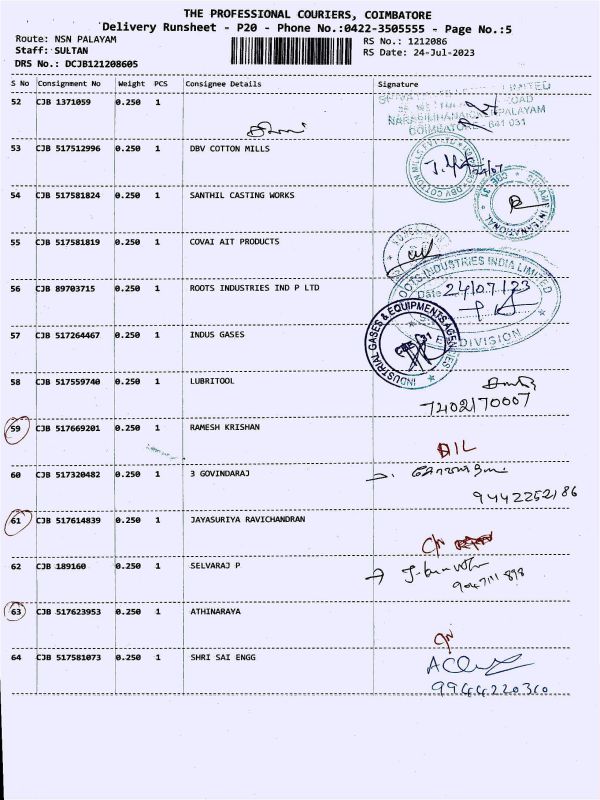 THE PROFESSIONAL COURIERS, COIMBATORE
Delivery Runsheet - P20 - Phone No.:0422-3505555 - Page No.:5
Route: NSN PALAYAM
Staff: SULTAN
DRS No.: DCJB121208605
RS No.: 1212086
RS Date: 24-Jul-2023
S No Consignment No Weight PCS Consignee Details Signature
52 CJB 1371059 0.250 1
LIMITED
ROAD
NARASIMHANAICKENPALAYAM
COIMBATORE - 641 031
53 CJB 517512996 0.250 1 DBV COTTON MILLS
DBV COTTON MILLS PVT LTD
54 CJB 517581824 0.250 1 SANTHIL CASTING WORKS
CBE 31
INTERNATIONAL
55 CJB 517581819 0.250 1 COVAI AIT PRODUCTS
56 CJB 89703715 0.250 1 ROOTS INDUSTRIES IND P LTD
ROOTS INDUSTRIES INDIA LIMITED
Date 24/07/23
DIVISION
57 CJB 517264467 0.250 1 INDUS GASES
INDUSTRIAL GASES & EQUIPMENTS AGENCIES
58 CJB 517559740 0.250 1 LUBRITOOL
7402170007
59 CJB 517669201 0.250 1 RAMESH KRISHAN
DIL
60 CJB 517320482 0.250 1 3 GOVINDARAJ
9442252186
61 CJB 517614839 0.250 1 JAYASURIYA RAVICHANDRAN
C/N
62 CJB 189160 0.250 1 SELVARAJ P
63 CJB 517623953 0.250 1 ATHINARAYA
64 CJB 517581073 0.250 1 SHRI SAI ENGG
9944220340